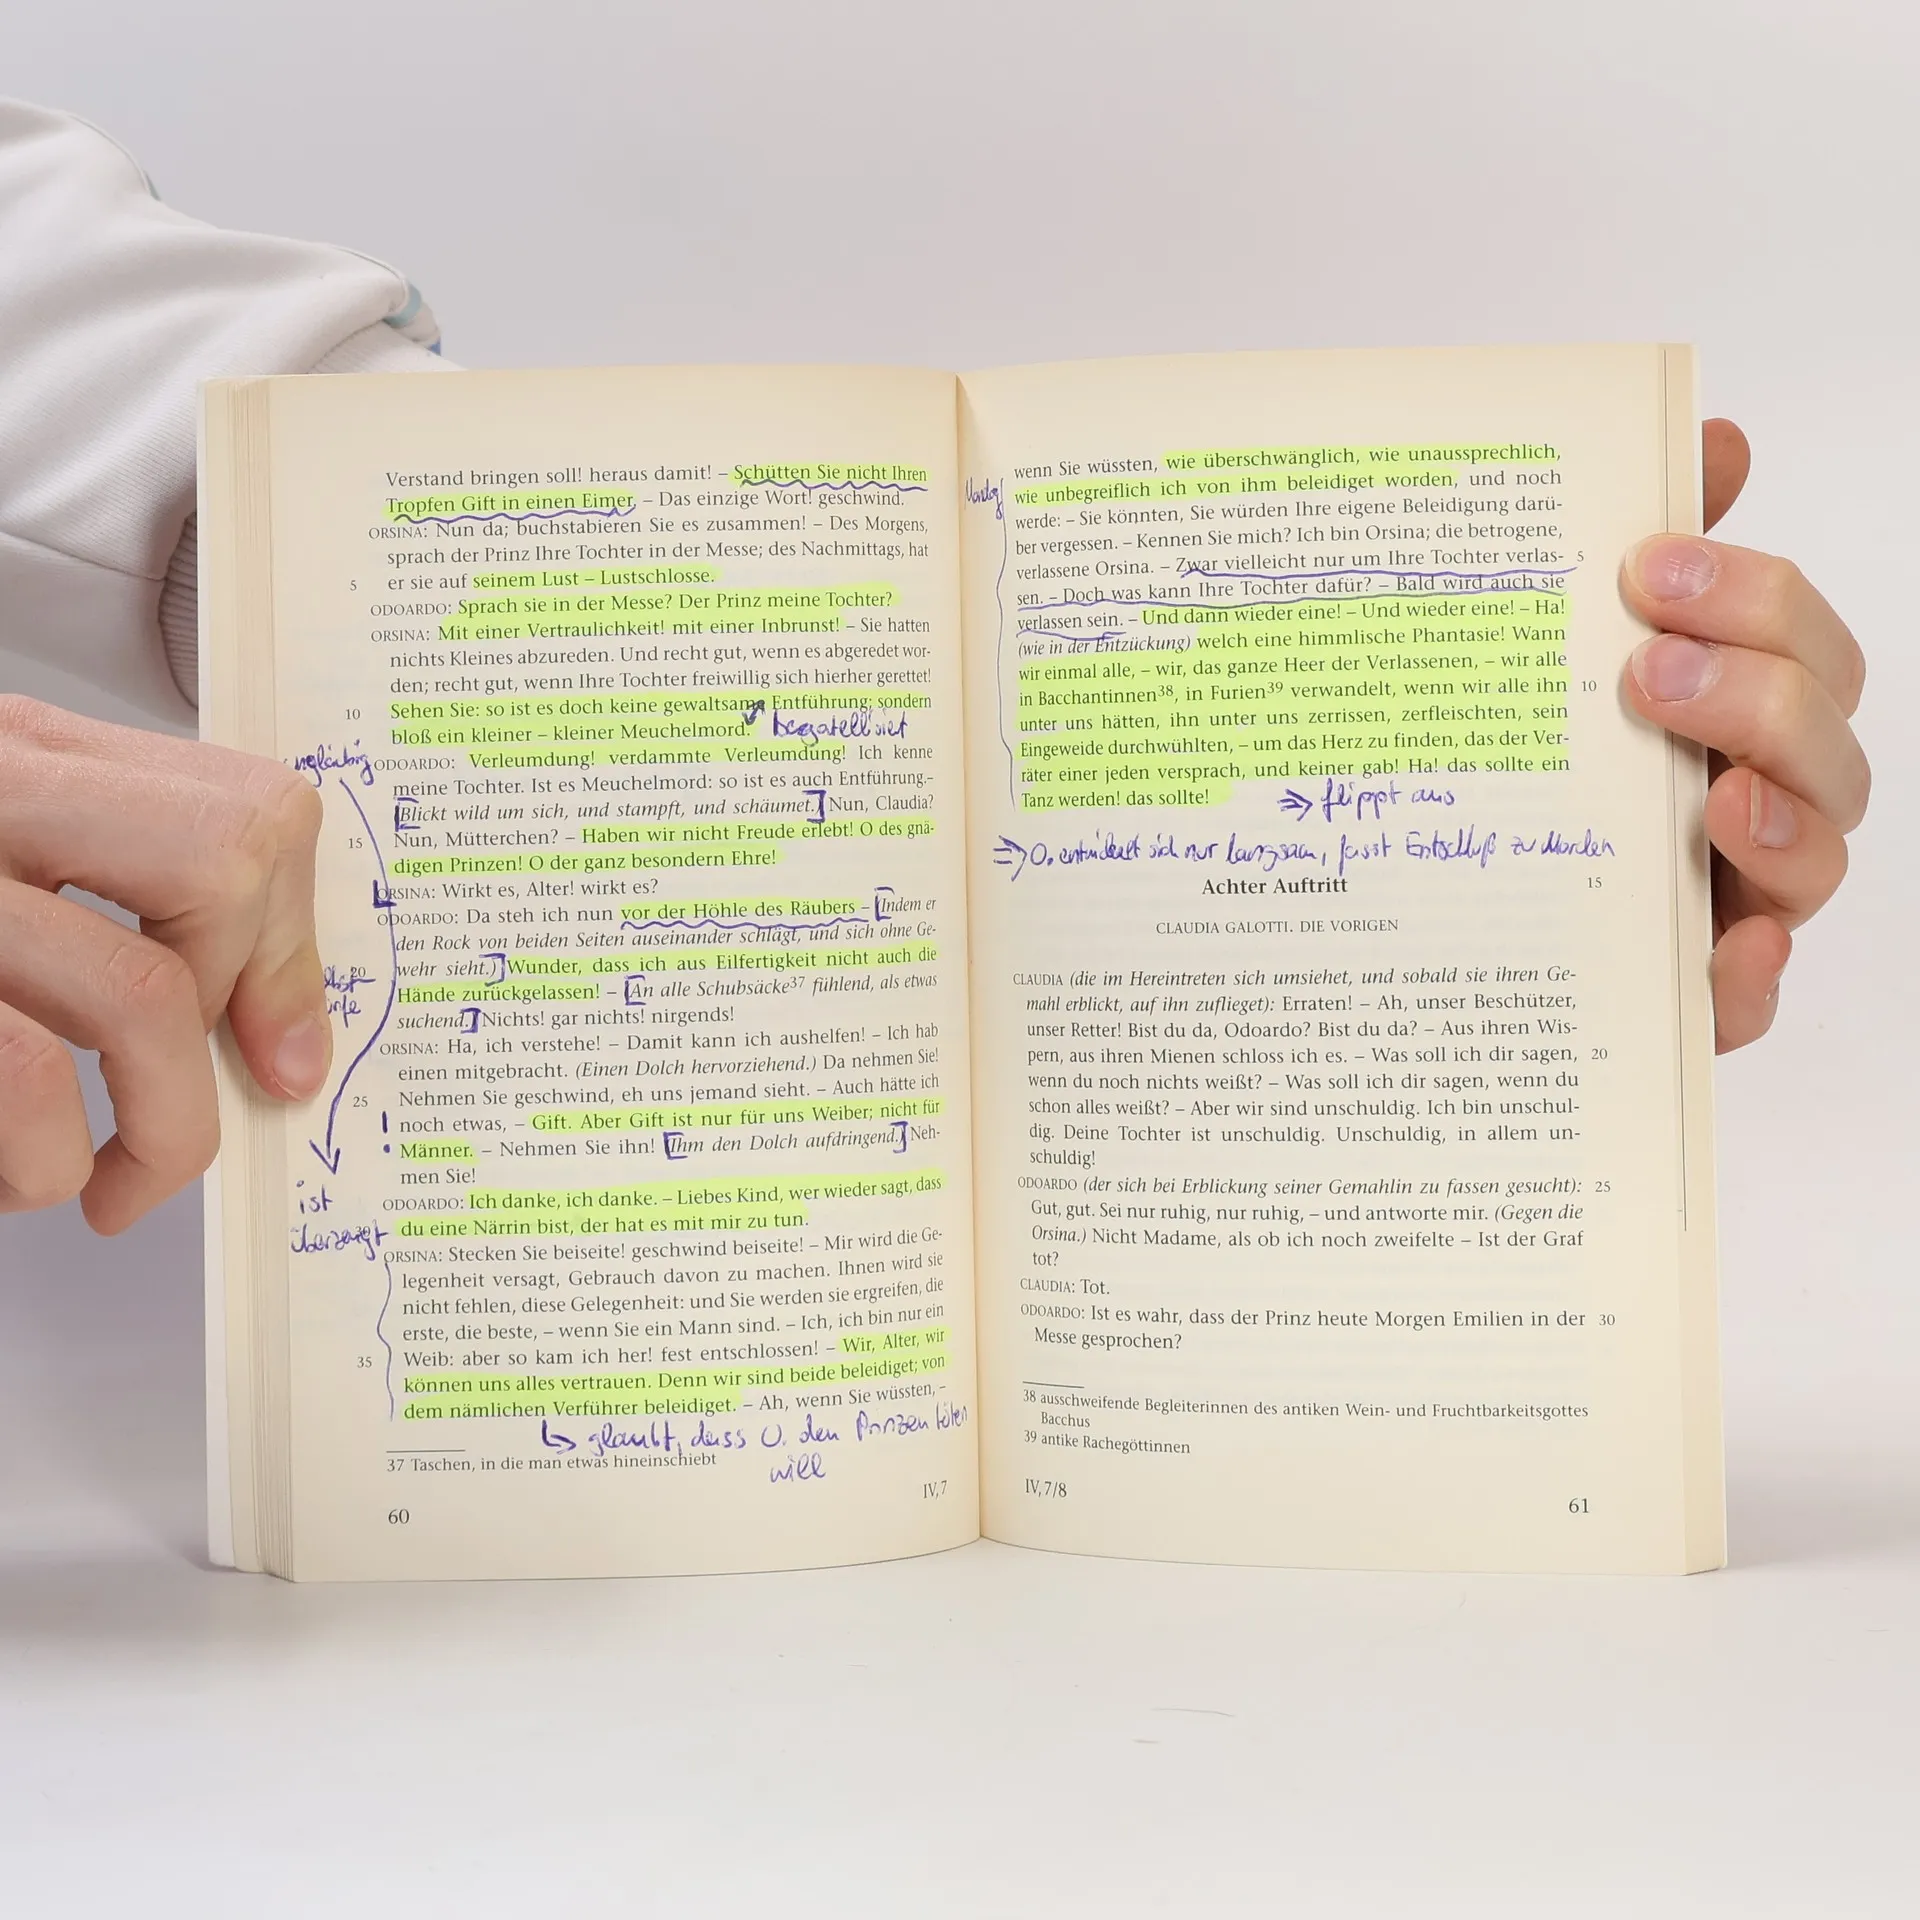 Verstand bringen soll! heraus damit! – Schütten Sie nicht Ihren
Tropfen Gift in einen Eimer. – Das einzige Wort! geschwind.
ORSINA: Nun da; buchstabieren Sie es zusammen! – Des Morgens,
sprach der Prinz Ihre Tochter in der Messe; des Nachmittags, hat
5 er sie auf seinem Lust – Lustschlosse.
ODOARDO: Sprach sie in der Messe? Der Prinz meine Tochter?
ORSINA: Mit einer Vertraulichkeit! mit einer Inbrunst! – Sie hatten
nichts Kleines abzureden. Und recht gut, wenn es abgeredet wor-
den; recht gut, wenn Ihre Tochter freiwillig sich hierher gerettet!
10 Sehen Sie: so ist es doch keine gewaltsame Entführung; sondern
bloß ein kleiner – kleiner Meuchelmord. bagatellisiert
ungläubig ODOARDO: Verleumdung! verdammte Verleumdung! Ich kenne
meine Tochter. Ist es Meuchelmord: so ist es auch Entführung.–
(Blickt wild um sich, und stampft, und schäumet.) Nun, Claudia?
15 Nun, Mütterchen? – Haben wir nicht Freude erlebt! O des gnä-
digen Prinzen! O der ganz besondern Ehre!
ORSINA: Wirkt es, Alter! wirkt es?
ODOARDO: Da steh ich nun vor der Höhle des Räubers – (Indem er
den Rock von beiden Seiten auseinander schlägt, und sich ohne Ge-
20 wehr sieht.) Wunder, dass ich aus Eilfertigkeit nicht auch die
Hände zurückgelassen! – (An alle Schubsäcke37 fühlend, als etwas
suchend.) Nichts! gar nichts! nirgends!
ORSINA: Ha, ich verstehe! – Damit kann ich aushelfen! – Ich hab
einen mitgebracht. (Einen Dolch hervorziehend.) Da nehmen Sie!
25 Nehmen Sie geschwind, eh uns jemand sieht. – Auch hätte ich
noch etwas, – Gift. Aber Gift ist nur für uns Weiber; nicht für
Männer. – Nehmen Sie ihn! (Ihm den Dolch aufdringend.) Neh-
men Sie!
ist
ODOARDO: Ich danke, ich danke. – Liebes Kind, wer wieder sagt, dass
überzeugt 30 du eine Närrin bist, der hat es mit mir zu tun.
ORSINA: Stecken Sie beiseite! geschwind beiseite! – Mir wird die Ge-
legenheit versagt, Gebrauch davon zu machen. Ihnen wird sie
nicht fehlen, diese Gelegenheit: und Sie werden sie ergreifen, die
erste, die beste, – wenn Sie ein Mann sind. – Ich, ich bin nur ein
35 Weib: aber so kam ich her! fest entschlossen! – Wir, Alter, wir
können uns alles vertrauen. Denn wir sind beide beleidiget; von
dem nämlichen Verführer beleidiget. – Ah, wenn Sie wüssten, –
glaubt, dass O. den Prinzen töten
will
37 Taschen, in die man etwas hineinschiebt
IV,7
60
wenn Sie wüssten, wie überschwänglich, wie unaussprechlich,
wie unbegreiflich ich von ihm beleidiget worden, und noch
werde: – Sie könnten, Sie würden Ihre eigene Beleidigung darü-
ber vergessen. – Kennen Sie mich? Ich bin Orsina; die betrogene,
verlassene Orsina. – Zwar vielleicht nur um Ihre Tochter verlas- 5
sen. – Doch was kann Ihre Tochter dafür? – Bald wird auch sie
verlassen sein. – Und dann wieder eine! – Und wieder eine! – Ha!
(wie in der Entzückung) welch eine himmlische Phantasie! Wann
wir einmal alle, – wir, das ganze Heer der Verlassenen, – wir alle
in Bacchantinnen38, in Furien39 verwandelt, wenn wir alle ihn 10
unter uns hätten, ihn unter uns zerrissen, zerfleischten, sein
Eingeweide durchwühlten, – um das Herz zu finden, das der Ver-
räter einer jeden versprach, und keiner gab! Ha! das sollte ein
Tanz werden! das sollte! ⇒ flippt aus
⇒ O. entwickelt sich nur langsam, fasst Entschluß zu Morden
Achter Auftritt 15
CLAUDIA GALOTTI. DIE VORIGEN
CLAUDIA (die im Hereintreten sich umsiehet, und sobald sie ihren Ge-
mahl erblickt, auf ihn zuflieget): Erraten! – Ah, unser Beschützer,
unser Retter! Bist du da, Odoardo? Bist du da? – Aus ihren Wis-
pern, aus ihren Mienen schloss ich es. – Was soll ich dir sagen, 20
wenn du noch nichts weißt? – Was soll ich dir sagen, wenn du
schon alles weißt? – Aber wir sind unschuldig. Ich bin unschul-
dig. Deine Tochter ist unschuldig. Unschuldig, in allem un-
schuldig!
ODOARDO (der sich bei Erblickung seiner Gemahlin zu fassen gesucht): 25
Gut, gut. Sei nur ruhig, nur ruhig, – und antworte mir. (Gegen die
Orsina.) Nicht Madame, als ob ich noch zweifelte – Ist der Graf
tot?
CLAUDIA: Tot.
ODOARDO: Ist es wahr, dass der Prinz heute Morgen Emilien in der 30
Messe gesprochen?
38 ausschweifende Begleiterinnen des antiken Wein- und Fruchtbarkeitsgottes
Bacchus
39 antike Rachegöttinnen
IV,7/8
61